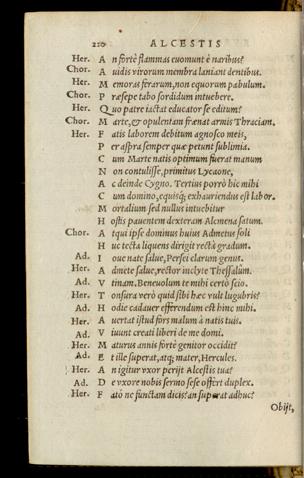 220 ALCESTIS
Her. An fortè flammas euomunt è naribus?
Chor. Auidis virorum membra laniant dentibus.
Her. Memoras ferarum, non equorum pabulum.
Chor. Præsepe tabo sordidum intuebere.
Her. Quo patre iactat educator se editum?
Chor. Marte, & opulentam frænat armis Thraciam.
Her. Fatis laborem debitum agnosco meis,
Per aspra semper quæ petunt sublimia.
Cum Marte natis optimum fuerat manum
Non contulisse, primitus Lycaone,
Ac deinde Cygno. Tertius porrò hic mihi
Cum domino, equisq; exhauriendus est labor.
Mortalium sed nullus intuebitur
Hostis pauentem dexteram Alcmena satum.
Chor. Atqui ipse dominus huius Admetus soli
Huc tecta liquens dirigit rectà gradum.
Ad. Ioue nate salue, Persei clarum genus.
Her. Admete salue, rector inclyte Thessalûm.
Ad. Vtinam. Beneuolum te mihi certò scio.
Her. Tonsura verò quid sibi hæc vult lugubris?
Ad. Hodie cadauer efferendum est hinc mihi.
Her. Auertat istud fors malum à natis tuis.
Ad. Viuunt creati liberi de me domi.
Her. Maturus annis fortè genitor occidit?
Ad. Et ille superat, atq; mater, Hercules.
Her. An igitur vxor perijt Alcestis tua?
Ad. De vxore nobis sermo sese offert duplex.
Her. Fato ne functam dicis? an superat adhuc?
Obijt,